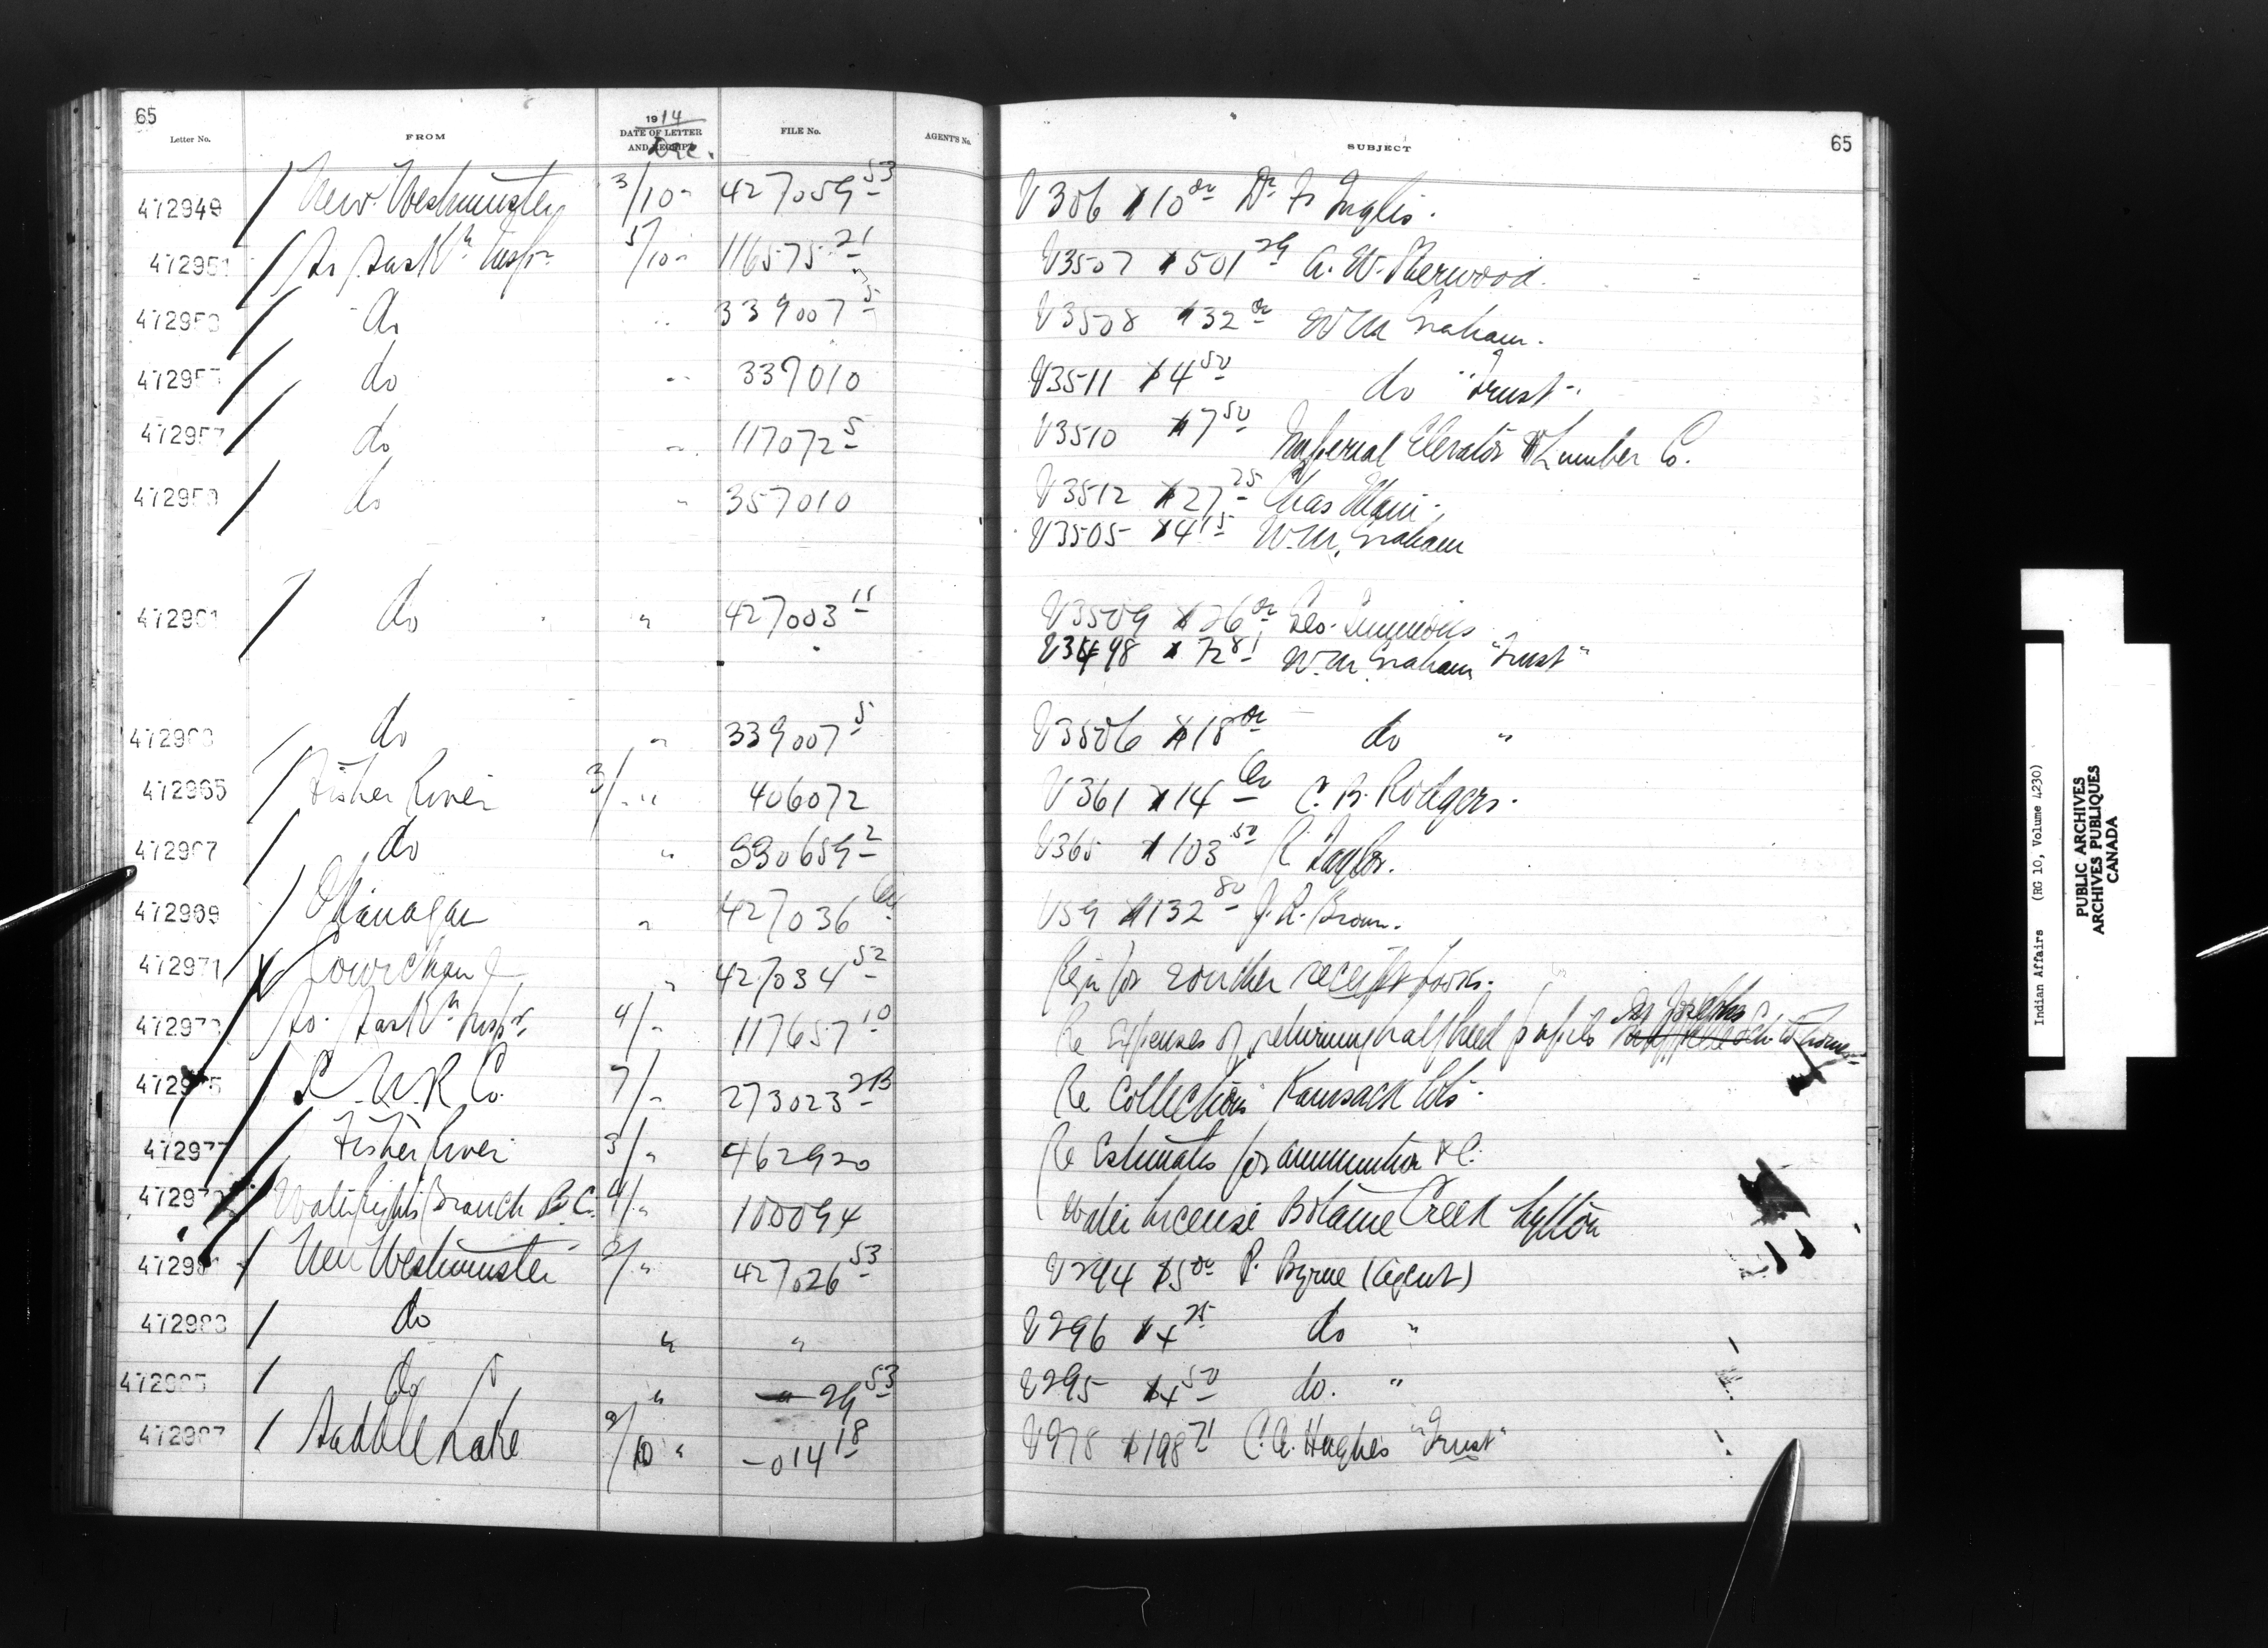 65
Letter No. FROM 1914 DATE OF LETTER AND RECEIPT Dec. FILE No. AGENT'S No. SUBJECT
65
472949 / New Westminster 3/10 " 427059 53 V306 $10 00 Dr. Fr Inglis.
472951 / So Sask'n Insp'r 5/10 " 116575 21 V3507 $501 29 A. W. Sherwood.
/ do " 339007 5 V3508 $32 00 W M Graham.
/ do " 339010 V3511 $4 50 do "Trust".
472957 / do " 117072 5 V3510 $7 50 Imperial Elevator & Lumber Co.
472959 / do " 357010 V3512 $27 25 Chas
V3505 $4 15 W. M. Graham
472961 / do " 427003 11 V3509 $26 00 Geo.
V3498 $72 81 W. M. Graham "Trust"
do " 339007 5 V3506 $18 00 do "
472965 / Fisher River 3/ " 406072 V361 $14 00 C. B. Rodgers.
472967 / do " 330659 2 V365 $103 50 R Taylor.
472969 / Okanagan " 427036 V59 $132 80 J. R. Brown.
472971 Cowichan " 427034 52 Req'n for voucher receipt forms.
So. Sask'n Insp'r. 4/ " 117657 10 Re Expenses of returning halfbreed pupils St Josephs
472975 / C. N. R Co. 7/ " 273023 2B Re Collections Kamsack lots.
472977 / Fisher River 3/ " 462920 Re Estimates for ammunition &c.
472979 Water Rights Branch B.C. 4/ " 100094 Water License Botanie Creek Lytton
472981 / New Westminster 427026 53 V294 $5 00 P. Byrne (Agent)
472983 / do " " V296 $4 25 do "
472985 / do " 29 53 V295 $4 50 do. "
472987 / Saddle Lake /10 " - 014 18 V978 $198 71 C. A. Hughes "Trust"
Indian Affairs (RG 10, Volume 4230)
PUBLIC ARCHIVES
ARCHIVES PUBLIQUES
CANADA